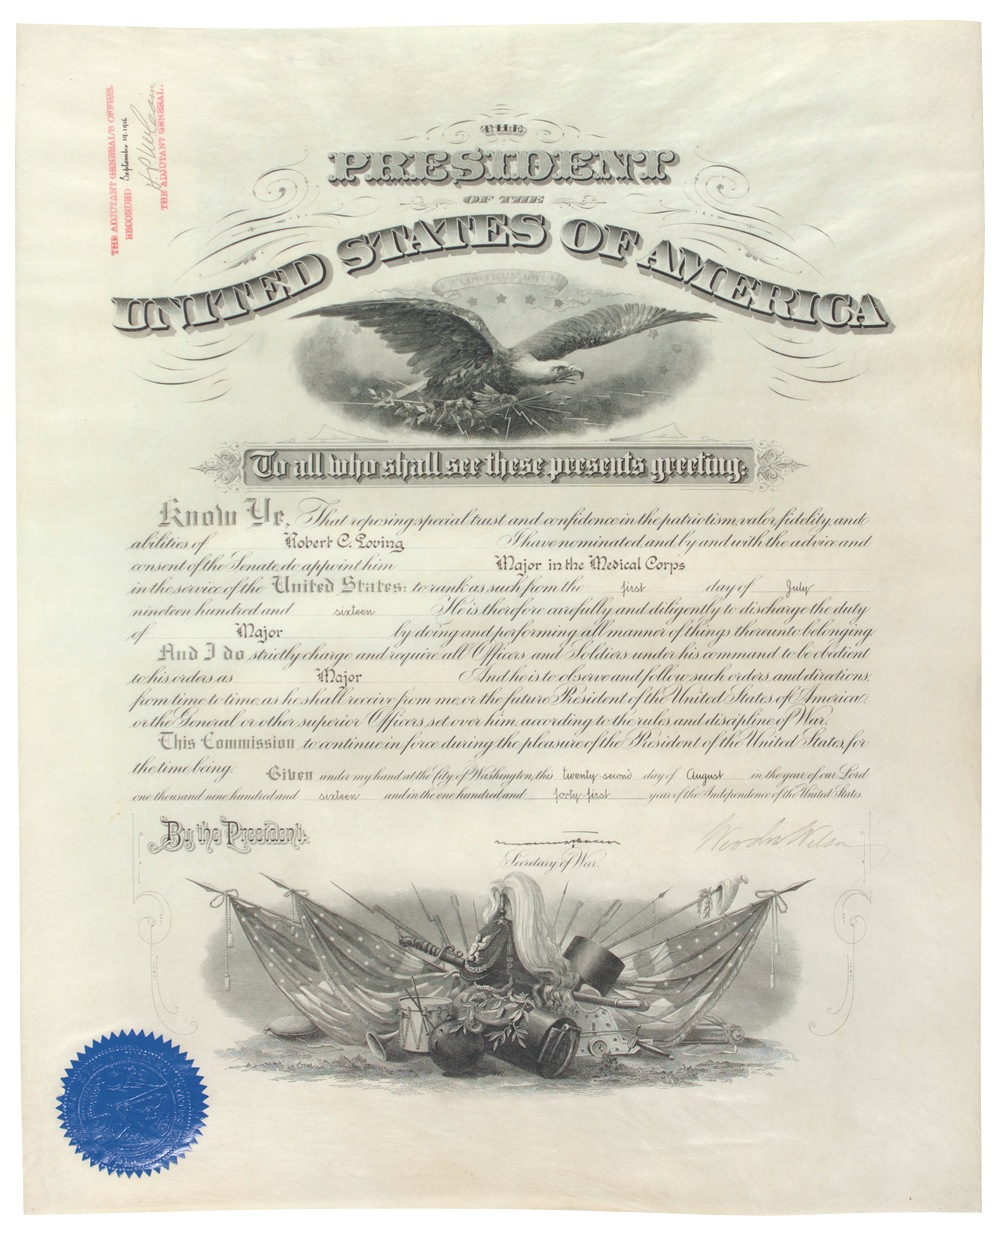 THE ADJUTANT GENERAL'S OFFICE.
RECORDED September 19, 1916
THE ADJUTANT GENERAL.
THE
PRESIDENT
OF THE
UNITED STATES OF AMERICA
To all who shall see these presents greeting:
Know Ye, That reposing special trust and confidence in the patriotism, valor, fidelity, and
abilities of Robert C. Loving I have nominated and by and with the advice and
consent of the Senate, do appoint him Major in the Medical Corps
in the service of the United States: to rank as such from the first day of July
nineteen hundred and sixteen He is therefore carefully and diligently to discharge the duty
of Major by doing and performing all manner of things thereunto belonging.
And I do strictly charge and require all Officers and Soldiers under his command to be obedient
to his orders as Major And he is to observe and follow such orders and directions,
from time to time, as he shall receive from me, or the future President of the United States of America,
or the General or other superior Officers set over him, according to the rules and discipline of War.
This Commission to continue in force during the pleasure of the President of the United States, for
the time being.
Given under my hand at the City of Washington, this twenty-second day of August in the year of our Lord
one thousand nine hundred and sixteen and in the one hundred and forty-first year of the Independence of the United States.
By the President:
Woodrow Wilson
Secretary of War.